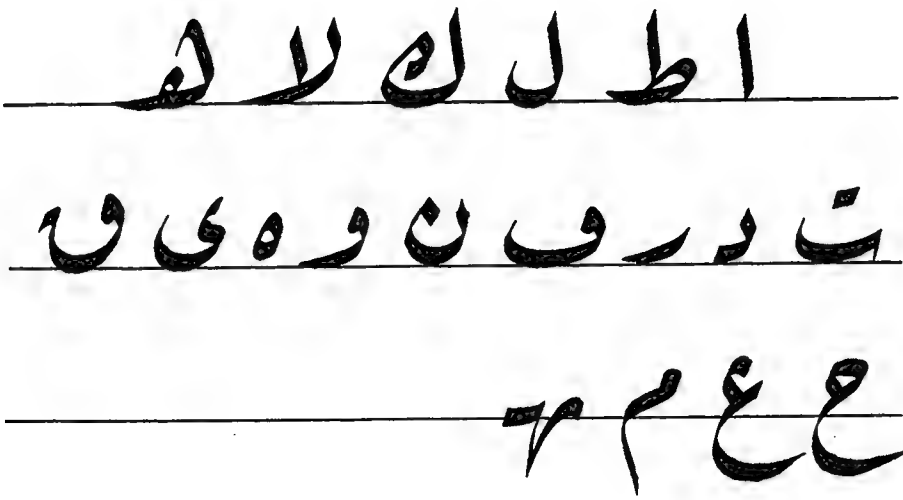 ا ط ل ك لا ھ
ت د ر ف ن و ه ى ق
ح ع م ـہ